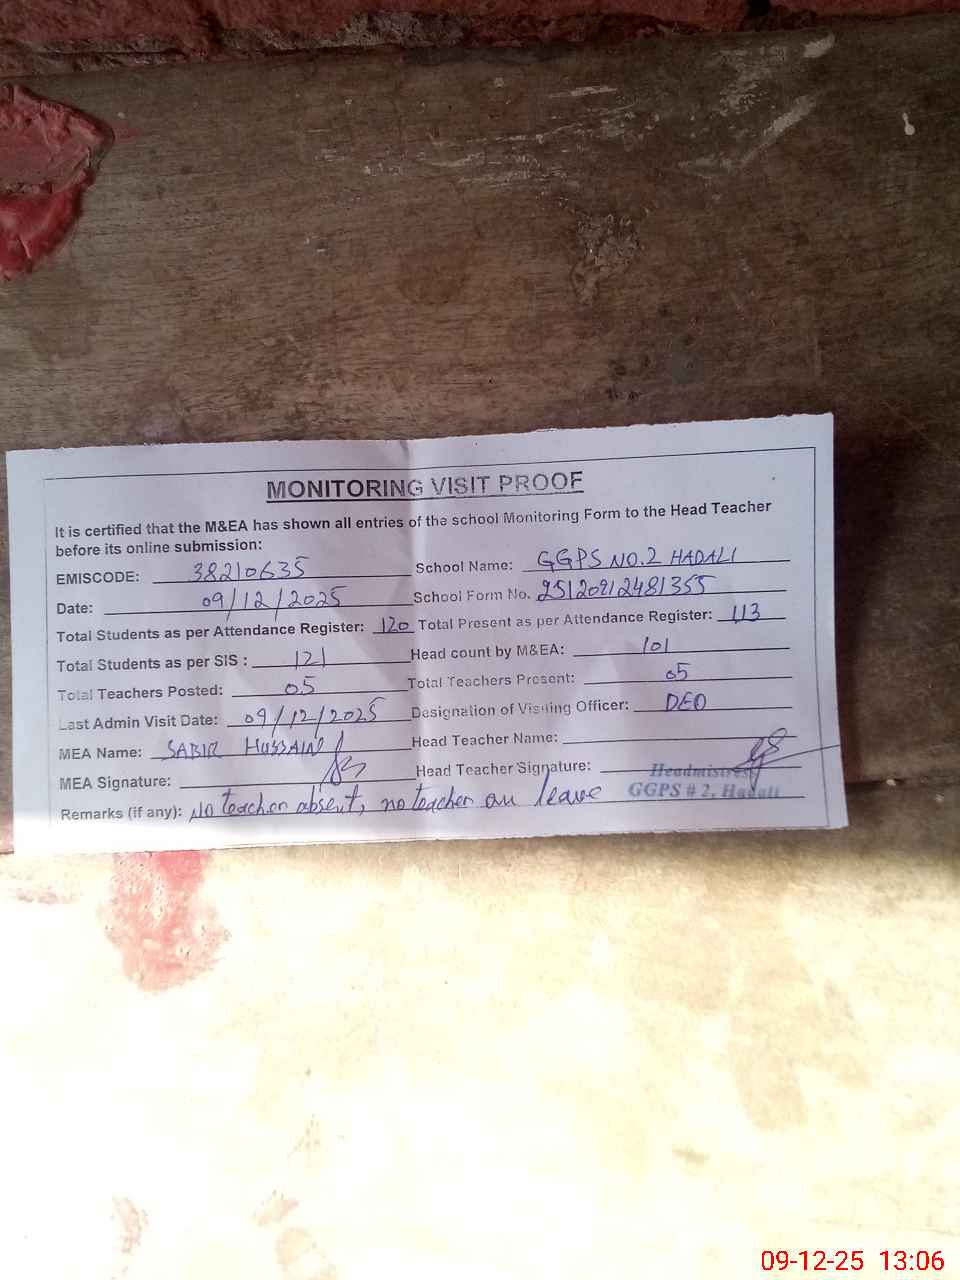 MONITORING VISIT PROOF
It is certified that the M&EA has shown all entries of the school Monitoring Form to the Head Teacher
before its online submission:
EMISCODE: 38210635 School Name: GGPS NO.2 HADALI
Date: 09/12/2025 School Form No. 25120912481355
Total Students as per Attendance Register: 120 Total Present as per Attendance Register: 113
Total Students as per SIS : 121 Head count by M&EA: 101
Total Teachers Posted: 05 Total Teachers Present: 05
Last Admin Visit Date: 09/12/2025 Designation of Visiting Officer: DEO
MEA Name: SABIR HUSSAIN Head Teacher Name:
MEA Signature: Head Teacher Signature: Headmistress
GGPS # 2, Hadali
Remarks (if any): No teacher absent, no teacher on leave
09-12-25 13:06